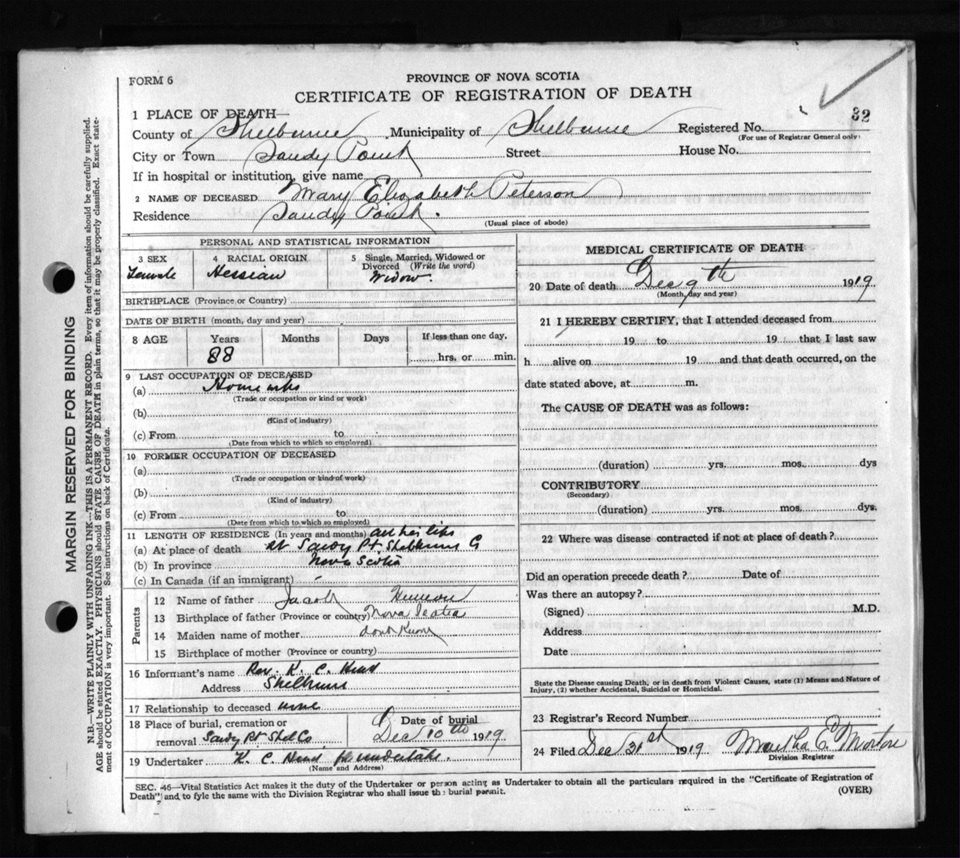 FORM 6
PROVINCE OF NOVA SCOTIA
CERTIFICATE OF REGISTRATION OF DEATH
32
1 PLACE OF DEATH—
County of Shelburne Municipality of Shelburne Registered No.
(For use of Registrar General only)
City or Town Sandy Point Street House No.
If in hospital or institution, give name
2 NAME OF DECEASED Mary Elizabeth Peterson
Residence Sandy Point.
(Usual place of abode)
PERSONAL AND STATISTICAL INFORMATION
3 SEX 4 RACIAL ORIGIN 5 Single, Married, Widowed or Divorced (Write the word)
Female Hessian Widow.
BIRTHPLACE (Province or Country)
DATE OF BIRTH (month, day and year)
8 AGE Years Months Days If less than one day,
88 hrs. or min.
9 LAST OCCUPATION OF DECEASED
(a)
(Trade or occupation or kind or work)
(b)
(Kind of industry)
(c) From to
(Date from which to which so employed)
10 FORMER OCCUPATION OF DECEASED
(a)
(Trade or occupation or kind of work)
(b)
(Kind of industry)
(c) From to
(Date from which to which so employed)
11 LENGTH OF RESIDENCE (In years and months) all her life
(a) At place of death at Sandy Pt Shelburne Co
(b) In province Nova Scotia
(c) In Canada (if an immigrant)
Parents
12 Name of father Jacob
13 Birthplace of father (Province or country) Nova Scotia
14 Maiden name of mother dont know
15 Birthplace of mother (Province or country)
16 Informant's name Rev. K. C. Hind
Address Shelburne
17 Relationship to deceased none
18 Place of burial, cremation or removal Sandy Pt Shel Co Date of burial Dec 10th 1919
19 Undertaker K. C. Hind
(Name and Address)
MEDICAL CERTIFICATE OF DEATH
20 Date of death Dec 9th 1919
(Month, day and year)
21 I HEREBY CERTIFY, that I attended deceased from
19 to 19 that I last saw
h alive on 19 and that death occurred, on the
date stated above, at m.
The CAUSE OF DEATH was as follows:
(duration) yrs. mos. dys
CONTRIBUTORY
(Secondary)
(duration) yrs. mos. dys.
22 Where was disease contracted if not at place of death?
Did an operation precede death? Date of
Was there an autopsy?
(Signed) M.D.
Address
Date
State the Disease causing Death, or in death from Violent Causes, state (1) Means and Nature of
Injury, (2) whether Accidental, Suicidal or Homicidal.
23 Registrar's Record Number
24 Filed Dec 31st 1919 Martha E. Morton
Division Registrar
SEC. 46—Vital Statistics Act makes it the duty of the Undertaker or person acting as Undertaker to obtain all the particulars required in the "Certificate of Registration of
Death" and to fyle the same with the Division Registrar who shall issue the burial permit. (OVER)
MARGIN RESERVED FOR BINDING
N.B.—WRITE PLAINLY WITH UNFADING INK—THIS IS A PERMANENT RECORD. Every item of information should be carefully supplied.
AGE should be stated EXACTLY. PHYSICIANS should STATE CAUSE OF DEATH in plain terms, so that it may be properly classified. Exact state-
ment of OCCUPATION is very important. See instructions on back of Certificate.